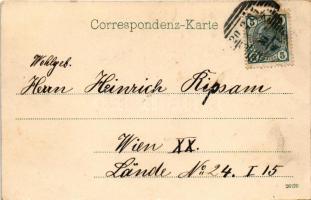 Correspondenz-Karte
Wohlgeb.
Herrn Heinrich Ripsam
Wien XX.
Lände No 24. I 15